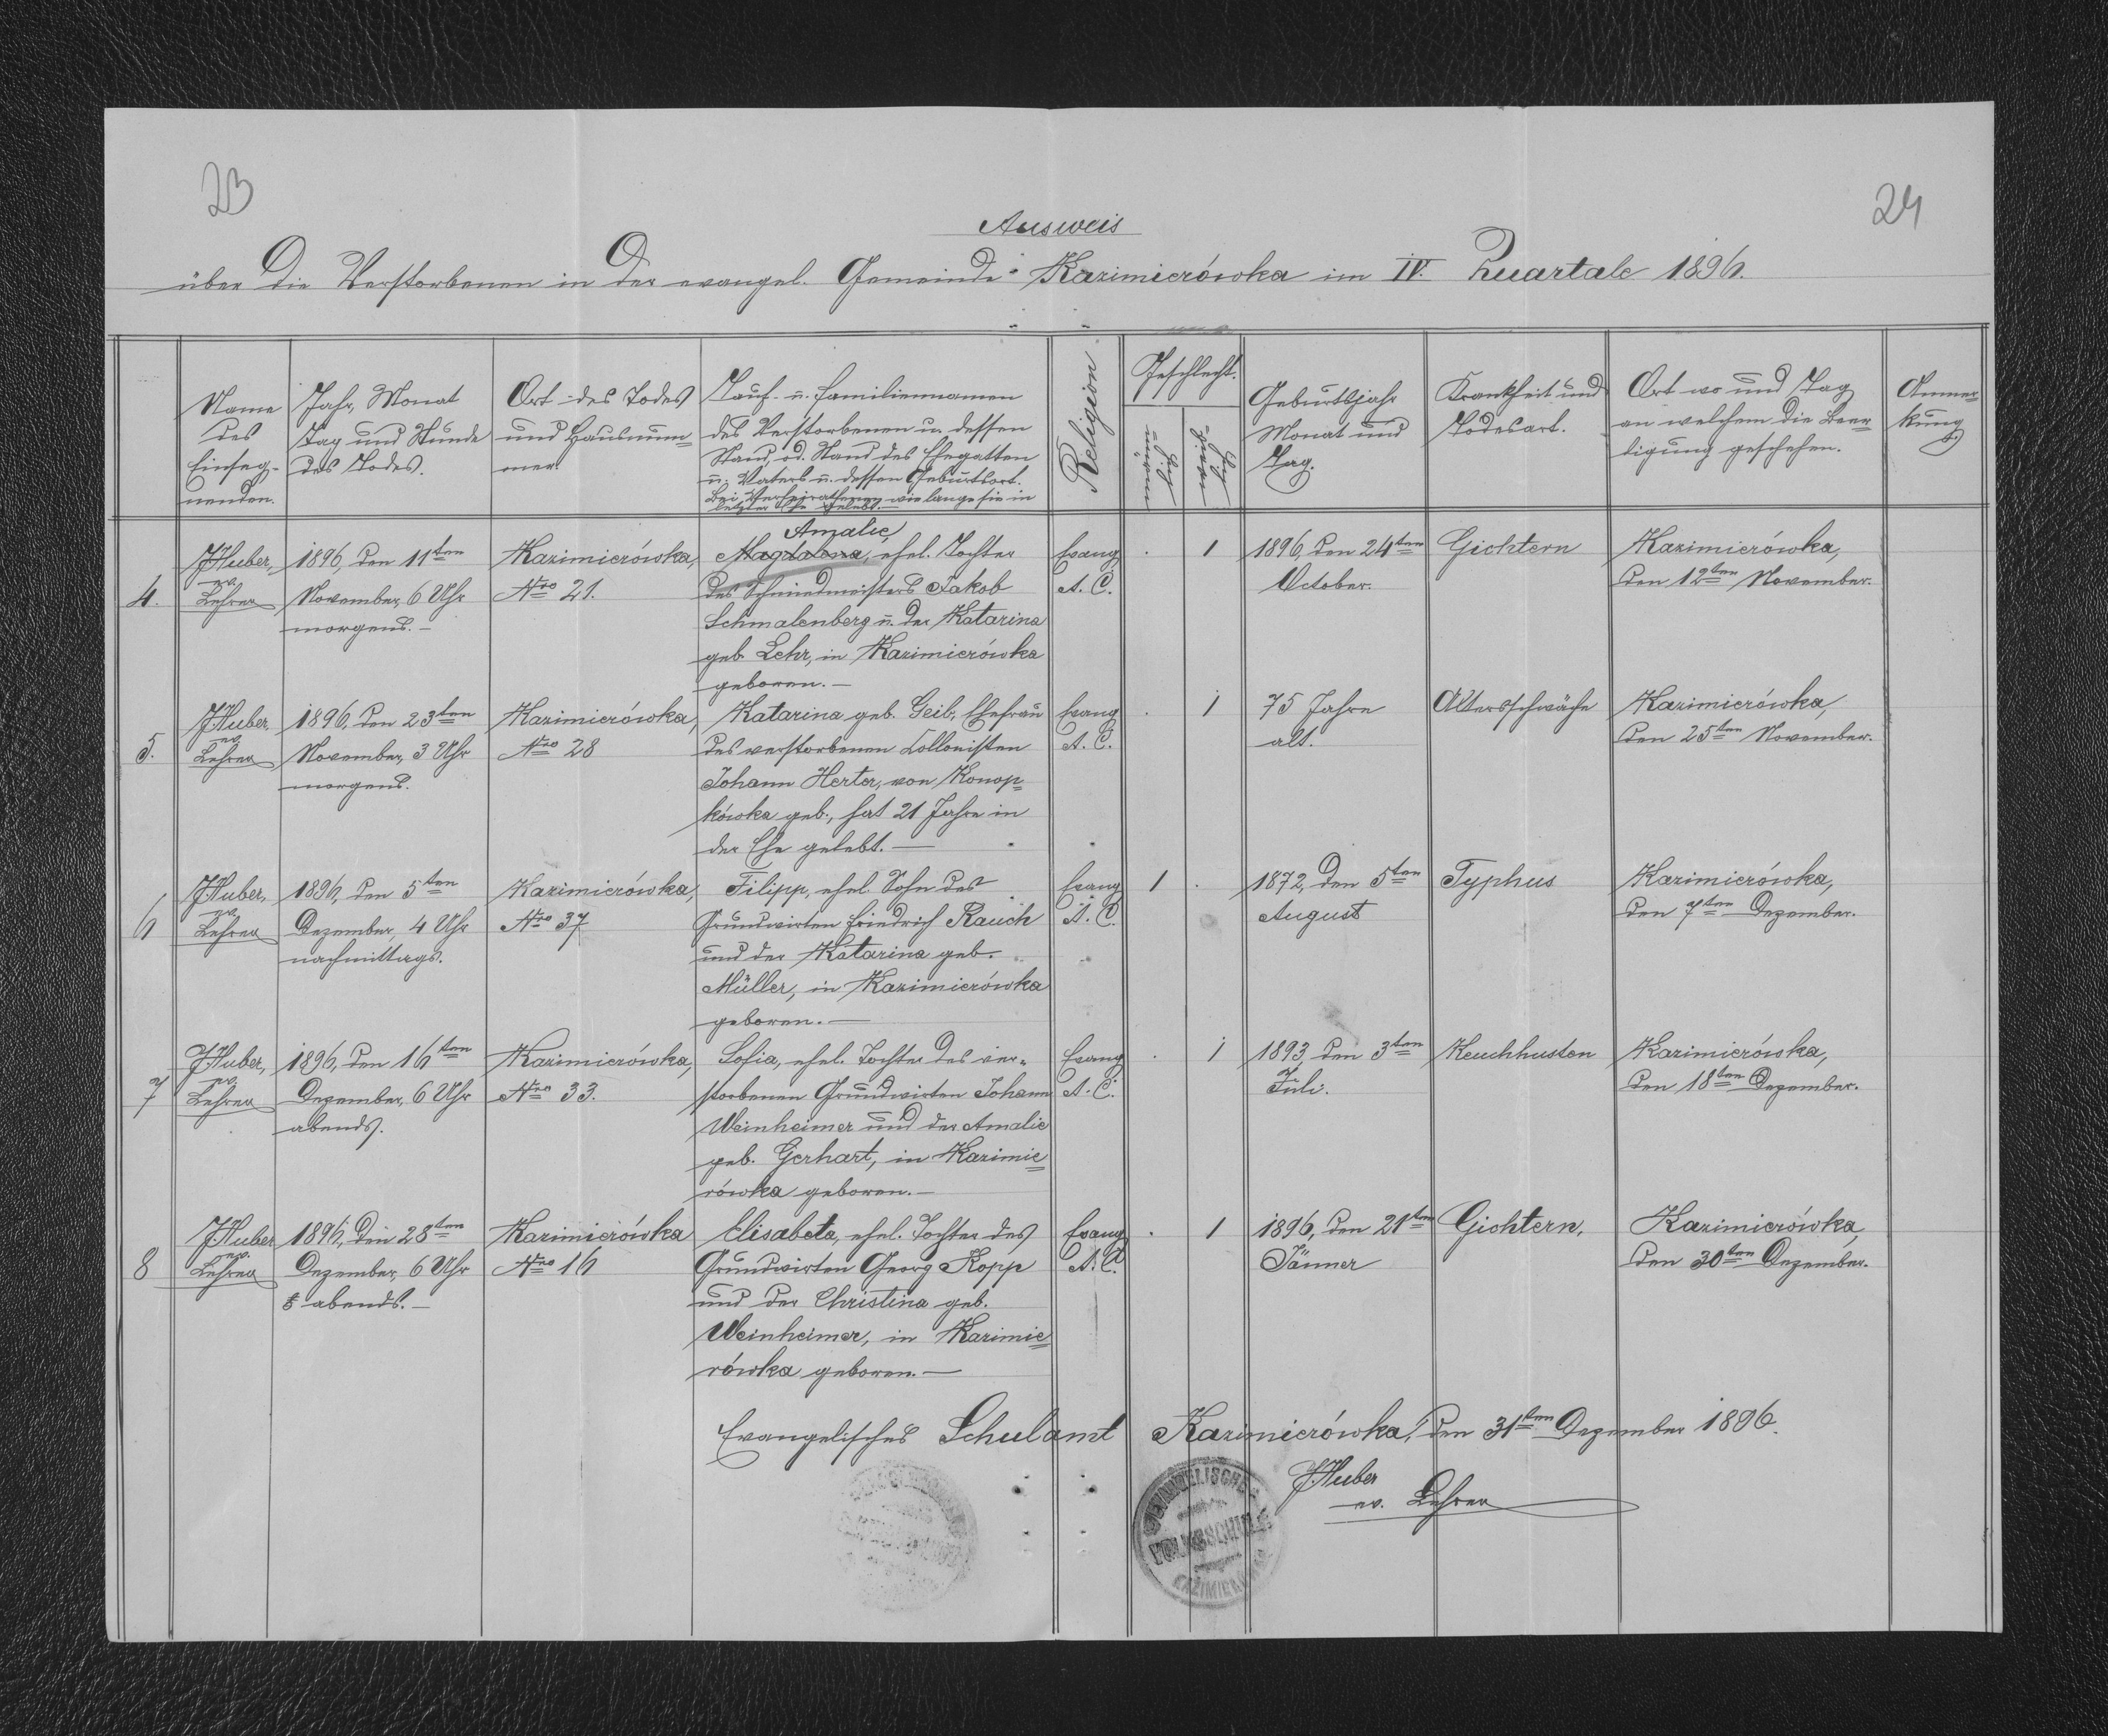 23
24
Ausweis
über die Verstorbenen in der evangel. Gemeinde Kazimierówka im IV. Quartale 1896.
Name
des
Einseg-
nenden.
Jahr, Monat
Tag und Stunde
des Todes.
Ort des Todes
und Hausnum=
mer.
Tauf- u. Familiennamen
des Verstorbenen u. dessen
Stand, od. Stand des Ehegatten
u. Vaters u. dessen Geburtsort.
Bei Verheiratheten wie lange sie in
letzter Ehe gelebt.
Religion
Geschlecht.
männ=
lich
weib=
lich
Geburtsjahr
Monat und
Tag.
Krankheit und
Todesart.
Ort wo und Tag
an welchem die Beer=
digung geschehen.
Anmer=
kung.
4.
J. Huber,
ev.
Lehrer
1896, den 11ten
November, 6 Uhr
morgens.—
Kazimierówka,
Nro 21.
Amalie,
Magdalena, ehel. Tochter
des Schmiedmeisters Jakob
Schmalenberg u. der Katarina
geb. Lehr, in Kazimierówka
geboren.—
Evang
A. C.
1
1896, den 24ten
October.
Gichtern
Kazimierówka,
den 12ten November.
5.
J. Huber,
ev.
Lehrer
1896, den 23ten
November, 3 Uhr
morgens.
Kazimierówka,
Nro 28
Katarina geb. Geib, Ehefrau
des verstorbenen Collonisten
Johann Herter, von Konop=
kówka geb., hat 21 Jahre in
der Ehe gelebt.—
Evang
A. C.
1
75 Jahre
alt.
Altersschwäche
Kazimierówka,
den 25ten November.
6
J. Huber,
ev.
Lehrer
1896, den 5ten
Dezember, 4 Uhr
nachmittags.
Kazimierówka,
Nro 37
Filipp, ehel. Sohn des
Grundwirten Friedrich Rauch
und der Katarina geb.
Müller, in Kazimierówka
geboren.—
Evang
A. C.
1
1872, den 5ten
August
Typhus
Kazimierówka,
den 7ten Dezember.
7
J. Huber,
ev.
Lehrer
1896, den 16ten
Dezember, 6 Uhr
abends.
Kazimierówka,
Nro 33.
Sofia, ehel. Tochter des ver=
storbenen Grundwirten Johann
Weinheimer und der Amalie
geb. Gerhart, in Kazimie=
rówka geboren.—
Evang
A. C.
1
1893, den 3ten
Juli.
Keuchhusten
Kazimierówka,
den 18ten Dezember.
8
J. Huber
ev.
Lehrer
1896, den 28ten
Dezember, 6 Uhr
abends.—
Kazimierówka
Nro 16
Elisabeta, ehel. Tochter des
Grundwirten Georg Kopp
und der Christina geb.
Weinheimer, in Kazimie=
rówka geboren.—
Evang
A. C.
1
1896, den 21ten
Jänner
Gichtern,
Kazimierówka,
den 30ten Dezember.
Evangelisches Schulamt Kazimierówka, den 31ten Dezember 1896.
J. Huber
ev. Lehrer
EVANGELISCHE
VOLKSSCHULE